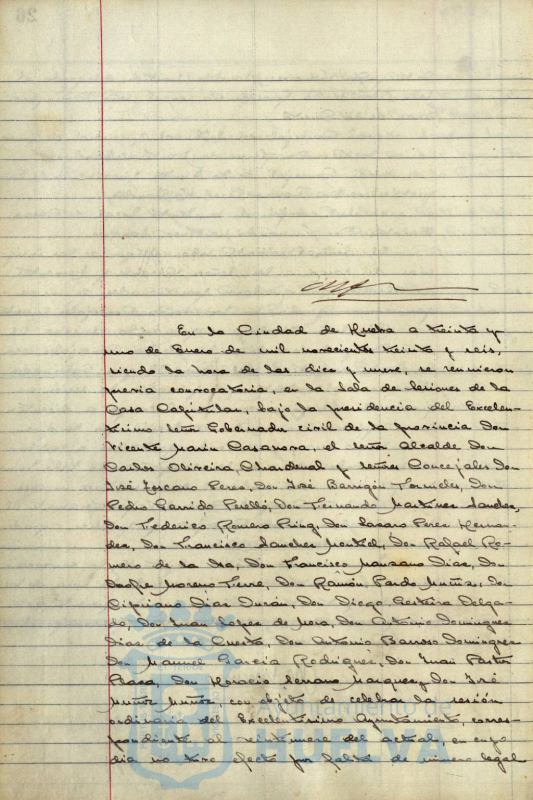 26
En la Ciudad de Huelva a treinta y
uno de Enero de mil novecientos treinta y seis,
siendo la hora de las diez y nueve, se reunieron
previa convocatoria, en la Sala de Sesiones de la
Casa Capitular, bajo la presidencia del Excelen-
tisimo Señor Gobernador civil de la provincia Don
Vicente Marin Casanova, el señor Alcalde Don
Carlos Oliveira Chardenal y señores Concejales Don
José Toscano Perez, Don José Barrigón Fornieles, Don
Pedro Garrido Perelló, Don Fernando Martinez Sanchez,
Don Federico Romero Don Lazaro Perez Hernan-
dez, Don Francisco Sanchez Don Rafael Ro-
mero de la Don Francisco Manzano Diaz, Don
Onofre Moreno Don Ramón Pardo Muñiz, Don
Cipriano Diaz Durán, Don Diego Delga-
do, Don Juan Lopez de Mora, Don Antonio Dominguez
Diaz de la Cuesta, Don Antonio Barroso Dominguez
Don Manuel Garcia Rodriguez, Don Juan Pastor
Plaza, Don Horacio Serrano Marquez y Don José
Muñoz Muñoz, con objeto de celebrar la sesión
ordinaria del Excelentisimo Ayuntamiento, corres-
pondiente al veintinueve del actual, en cuyo
dia no tuvo efecto por falta de número legal
Ayuntamiento de
HUELVA